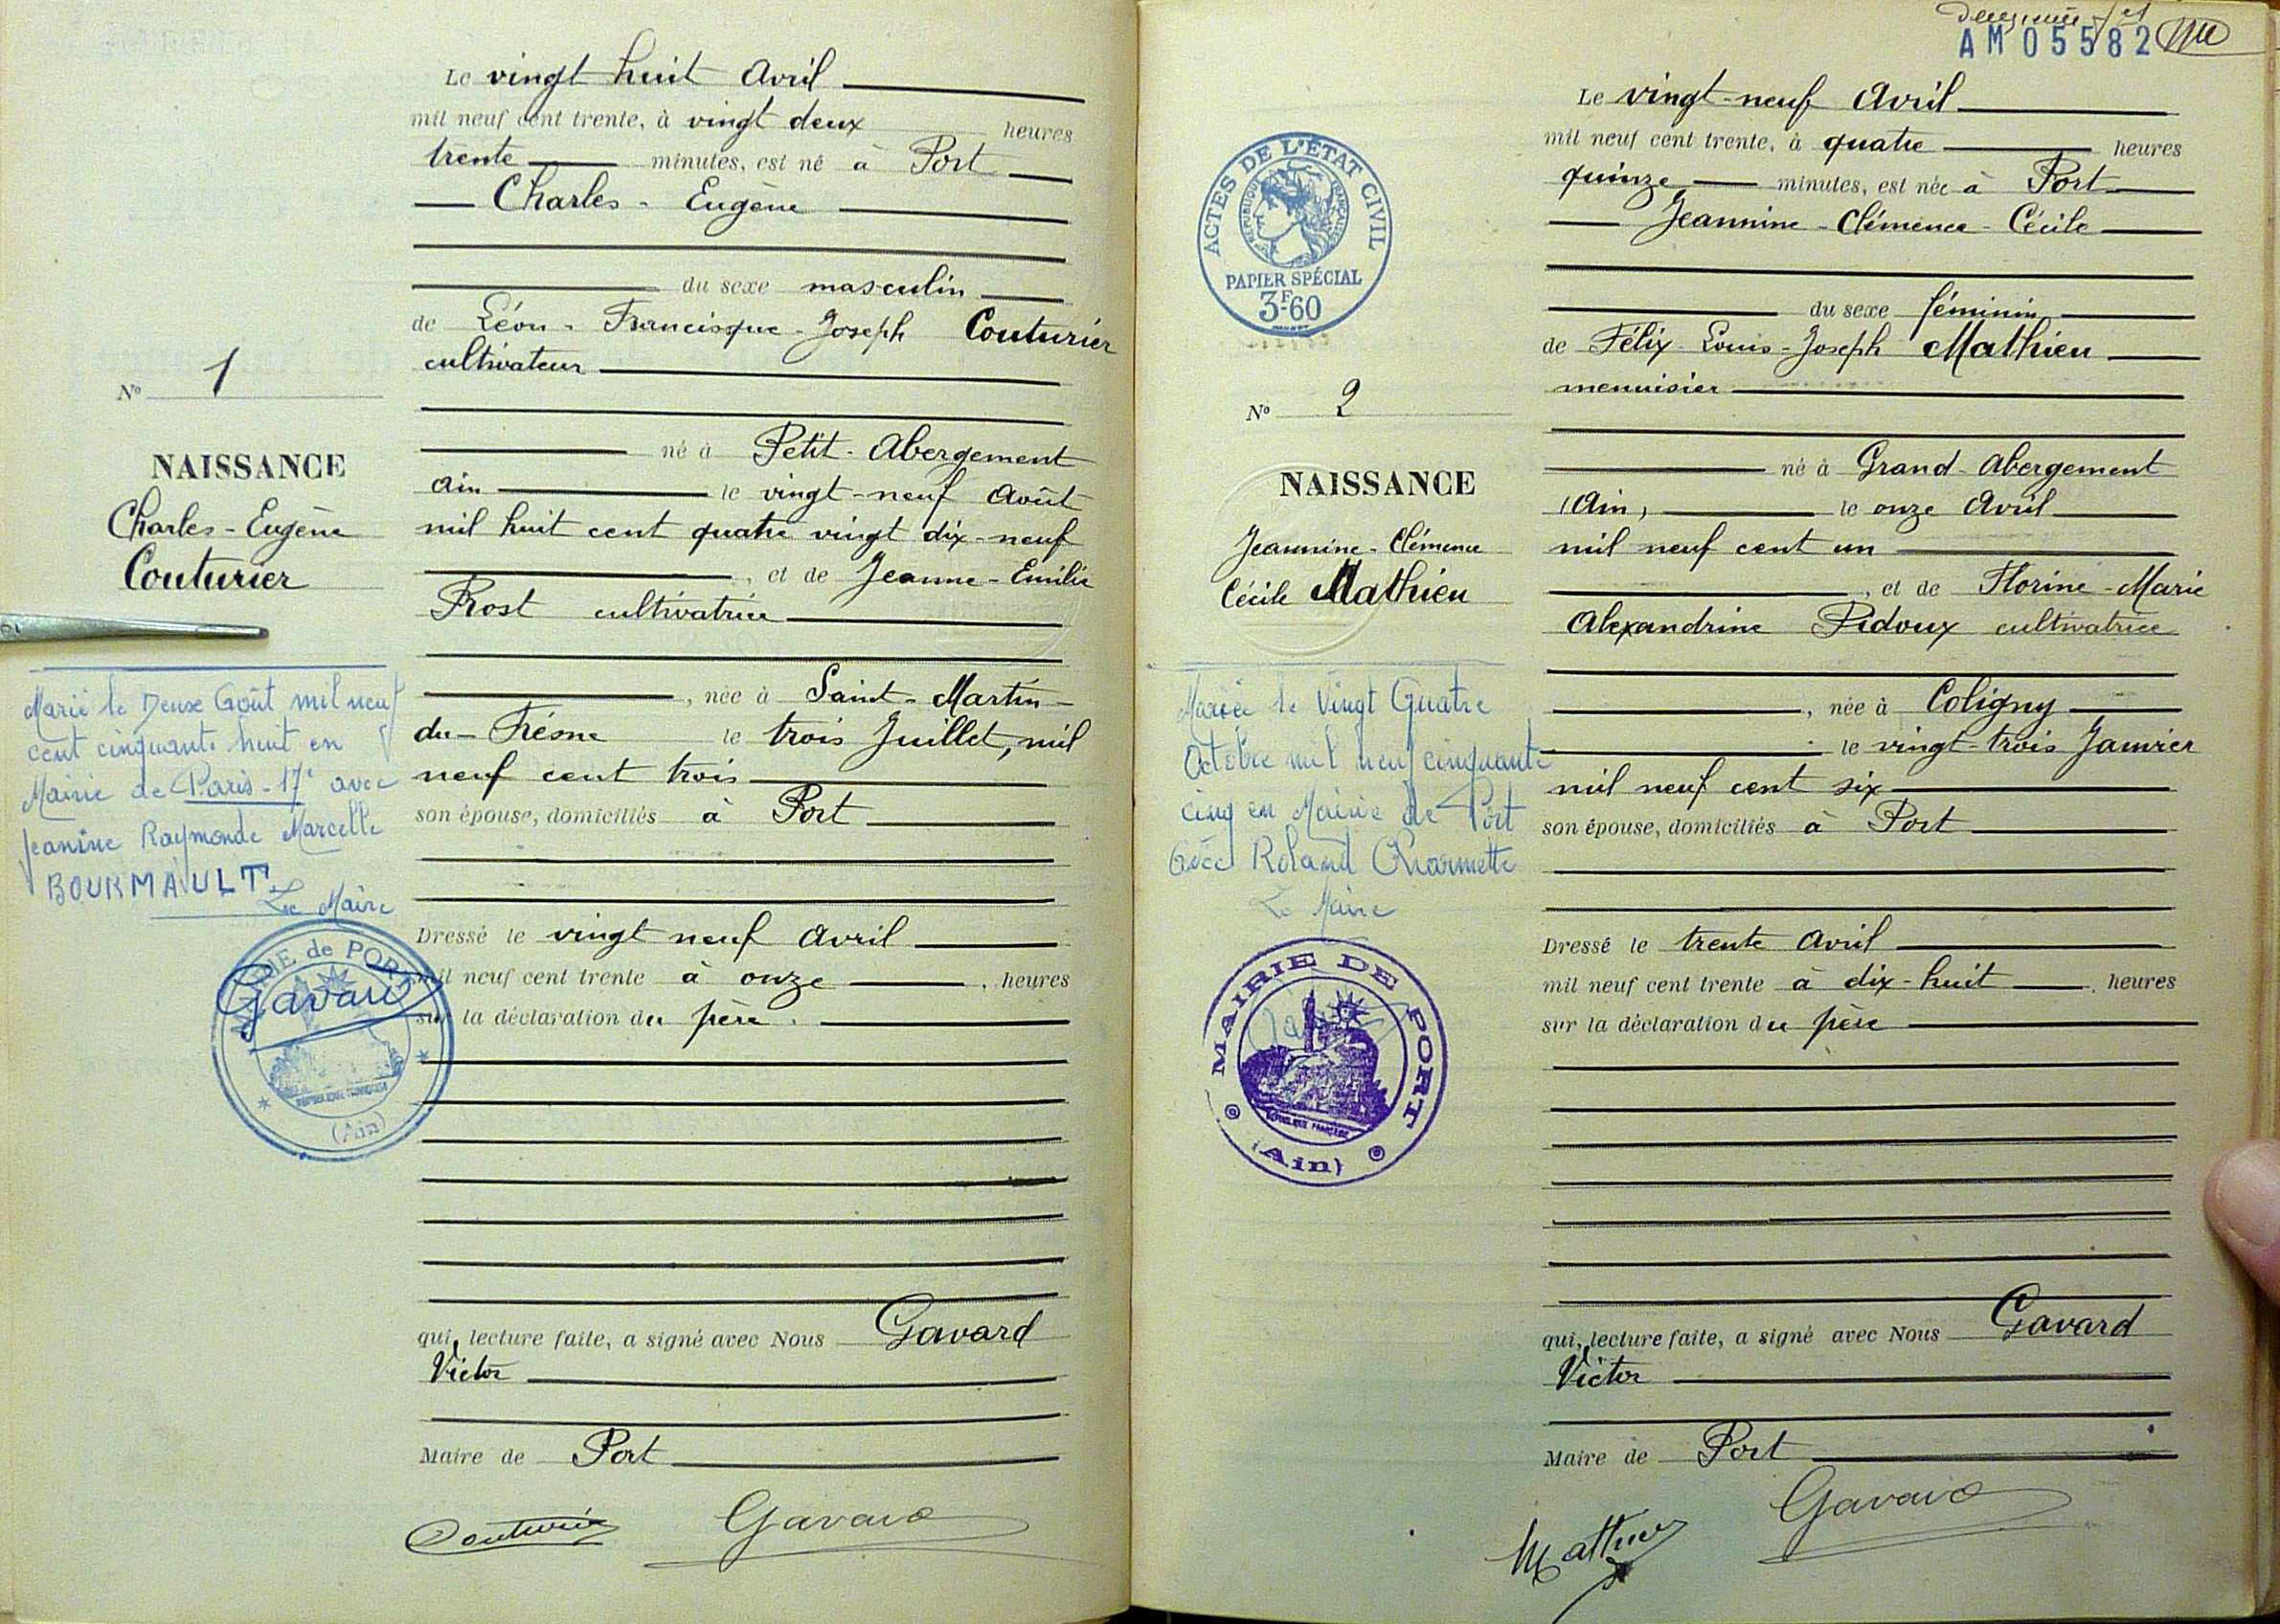 Le vingt huit Avril
mil neuf cent trente, à vingt deux heures
trente minutes, est né à Port
Charles - Eugène
du sexe masculin
de Léon - Francisque - Joseph Couturier
cultivateur
né à Petit - Abergement
Ain le vingt-neuf Août
mil huit cent quatre vingt dix-neuf
, et de Jeanne - Emilie
Prost cultivatrice
, née à Saint - Martin -
du - Frésne le trois Juillet, mil
neuf cent trois
son épouse, domiciliés à Port
Dressé le vingt neuf Avril
mil neuf cent trente à onze , heures
sur la déclaration du père .
qui, lecture faite, a signé avec Nous Gavard
Victor
Maire de Port
Couturier Gavard
N° 1
NAISSANCE
Charles - Eugène
Couturier
Marié le Deux Août mil neuf
cent cinquante huit en
Mairie de Paris - 17e avec
Jeanine Raymonde Marcelle
BOURMAULT
Le Maire
MAIRIE de PORT
Gavard
REPUBLIQUE FRANÇAISE
(Ain)
AM 05582
ACTES DE L'ÉTAT CIVIL
RÉPUBLIQUE FRANÇAISE
PAPIER SPÉCIAL
3F.60
N° 2
NAISSANCE
Jeannine - Clémence
Cécile Mathieu
Mariée le Vingt Quatre
Octobre mil neuf cinquante
cinq en Mairie de Port
Avec Roland Charmette
Le Maire
MAIRIE DE PORT
REPUBLIQUE FRANÇAISE
(Ain)
Le vingt-neuf Avril
mil neuf cent trente, à quatre heures
quinze minutes, est née à Port
Jeannine - Clémence - Cécile
du sexe féminin
de Félix - Louis - Joseph Mathieu
menuisier
né à Grand - Abergement
(Ain) le onze Avril
mil neuf cent un
, et de Florine - Marie
Alexandrine Pidoux cultivatrice
, née à Coligny
le vingt-trois Janvier
mil neuf cent six
son épouse, domiciliés à Port
Dressé le trente Avril
mil neuf cent trente à dix-huit , heures
sur la déclaration du père
qui, lecture faite, a signé avec Nous Gavard
Victor
Maire de Port
Mathieu Gavard